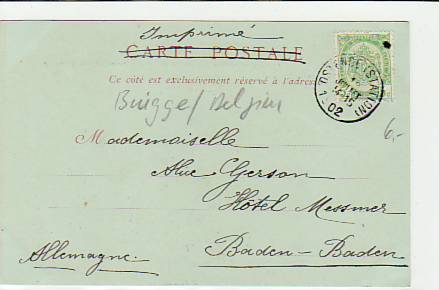 Imprimé
CARTE POSTALE
Ce côté est exclusivement réservé à l'adresse
OSTENDE (STATION)
1-02
Brügge/Belgien
6,-
Mademoiselle
Gerson
Hôtel Messmer
Baden-Baden
Allemagne.